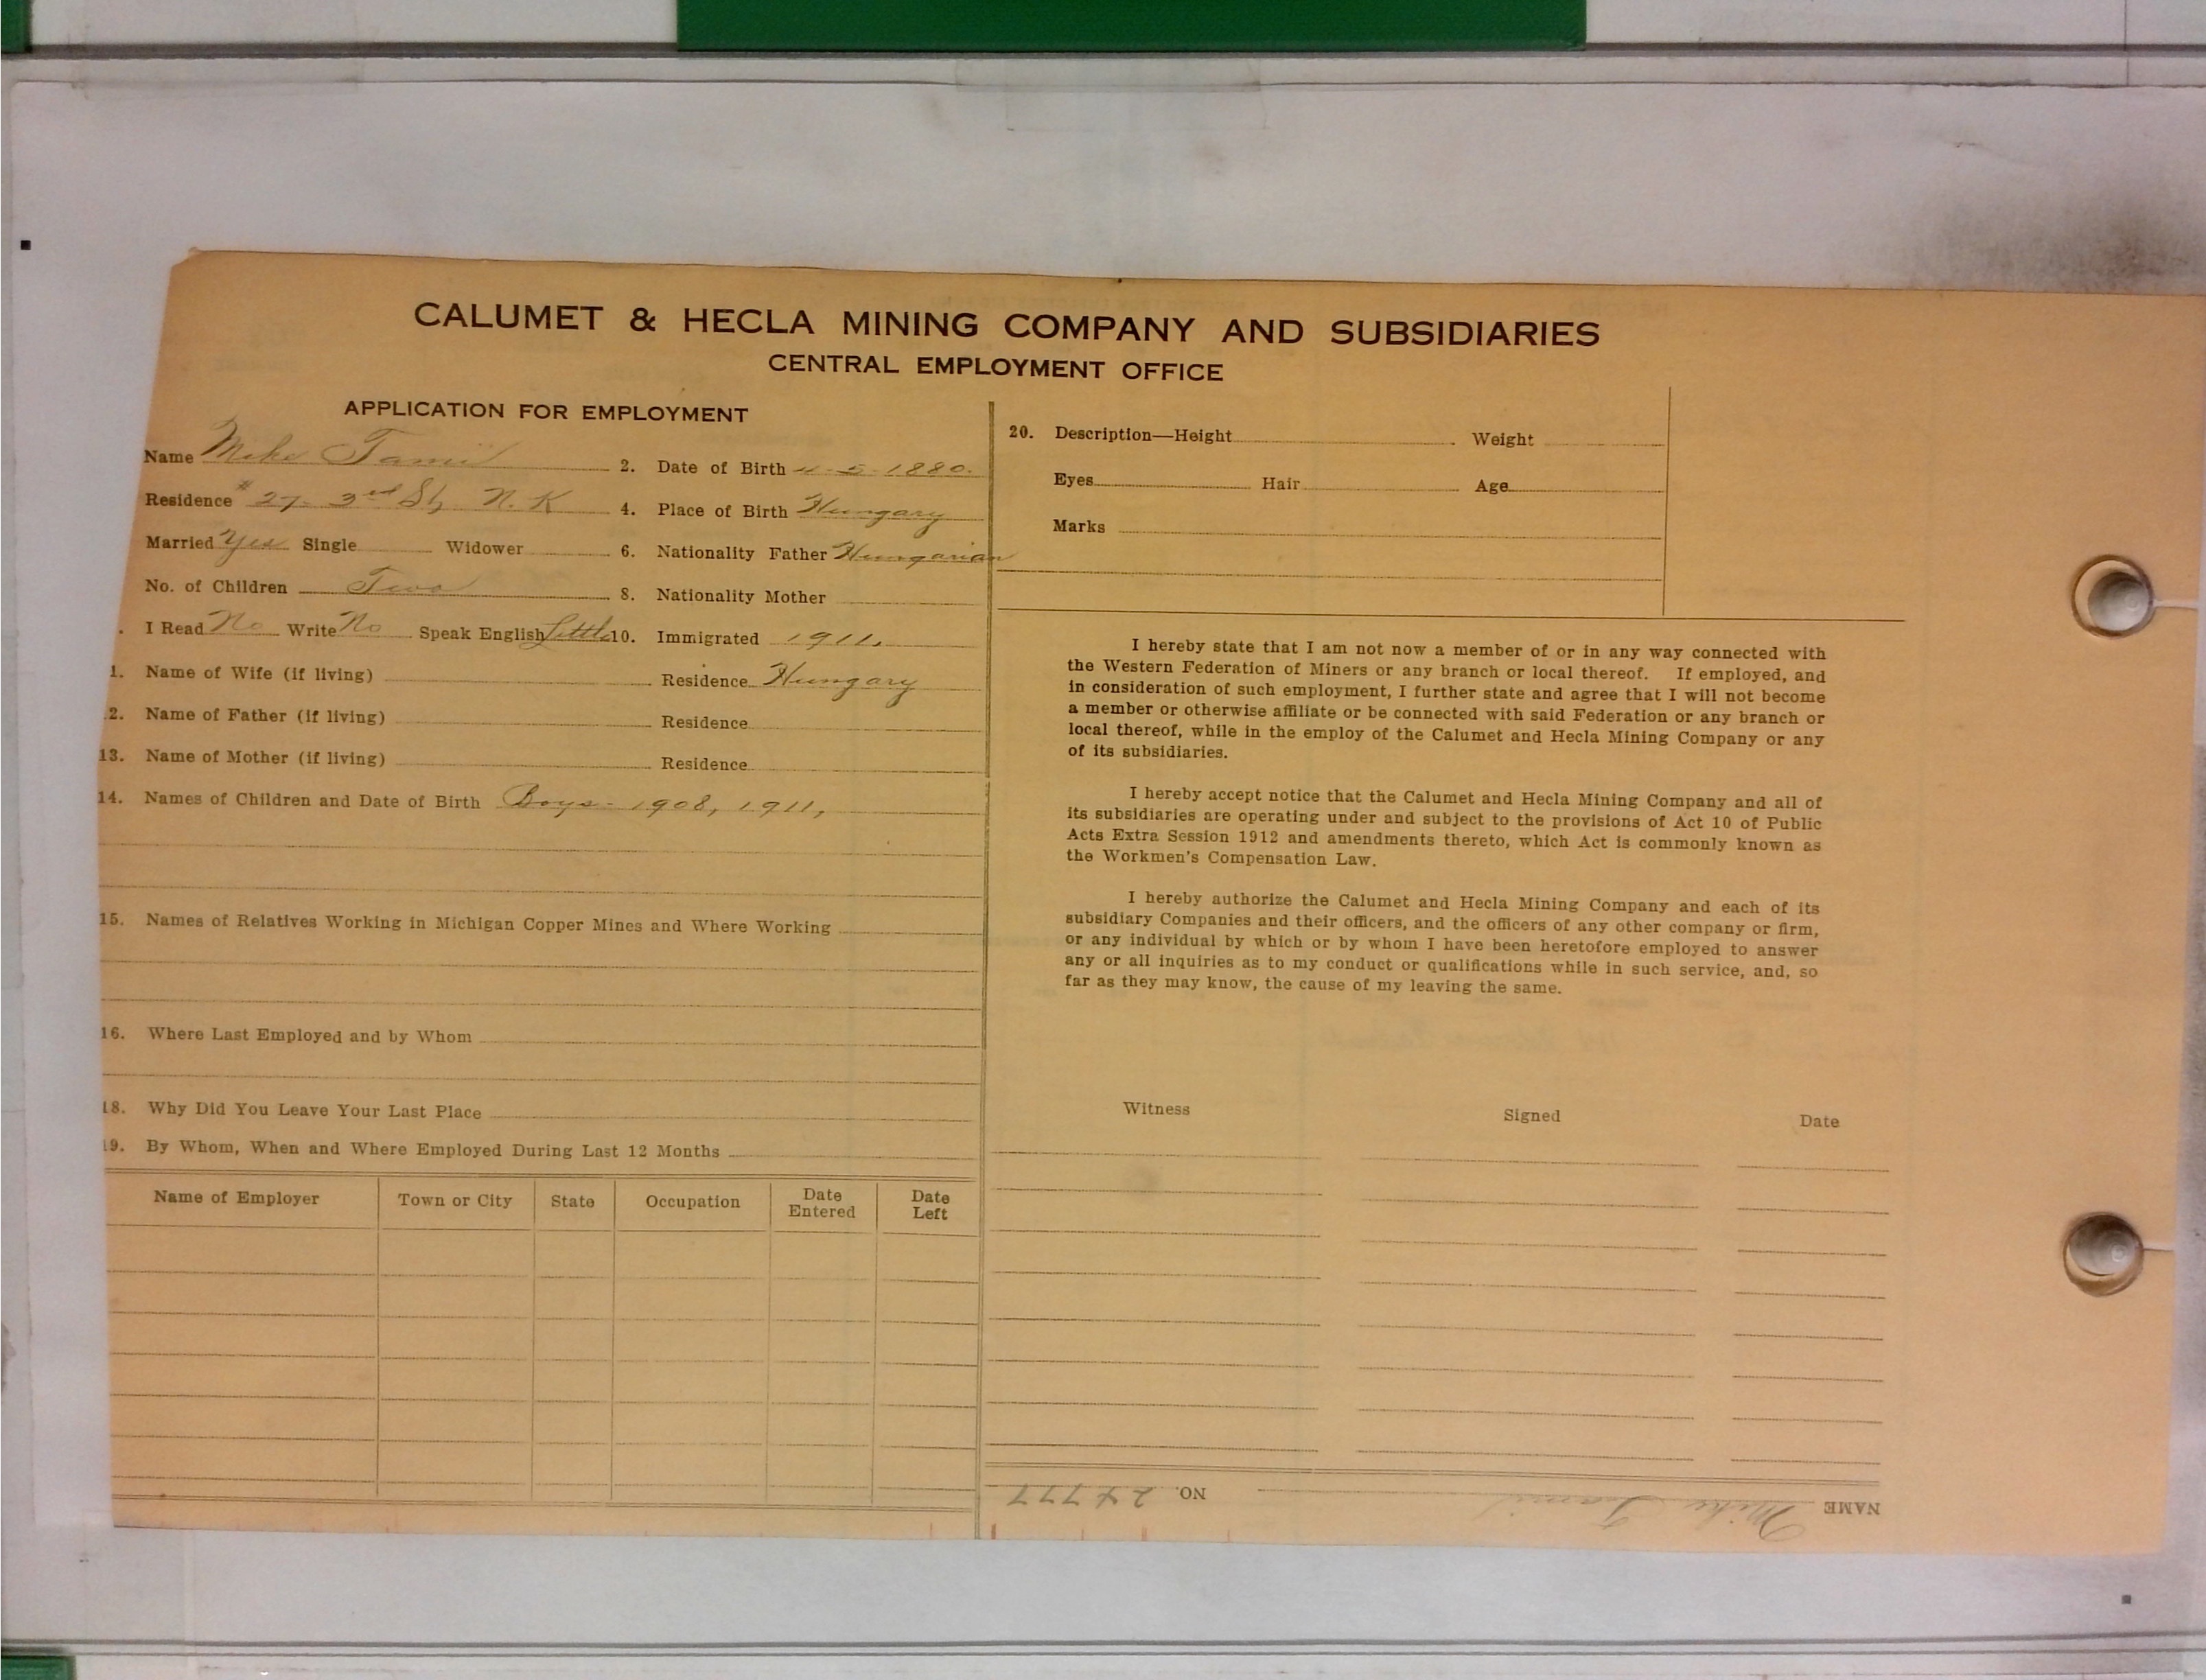 CALUMET & HECLA MINING COMPANY AND SUBSIDIARIES
CENTRAL EMPLOYMENT OFFICE
APPLICATION FOR EMPLOYMENT
Name Mike 2. Date of Birth 4-5-1880.
Residence # 27- 3rd St, N. K 4. Place of Birth Hungary
Married Yes Single Widower 6. Nationality Father Hungarian
No. of Children Two 8. Nationality Mother
. I Read No Write No Speak English Little 10. Immigrated 1911.
1. Name of Wife (if living) Residence Hungary
2. Name of Father (if living) Residence
13. Name of Mother (if living) Residence
14. Names of Children and Date of Birth Boys- 1908, 1911,
15. Names of Relatives Working in Michigan Copper Mines and Where Working
16. Where Last Employed and by Whom
18. Why Did You Leave Your Last Place
19. By Whom, When and Where Employed During Last 12 Months
Name of Employer Town or City State Occupation Date Entered Date Left
20. Description—Height Weight
Eyes Hair Age
Marks
I hereby state that I am not now a member of or in any way connected with
the Western Federation of Miners or any branch or local thereof. If employed, and
in consideration of such employment, I further state and agree that I will not become
a member or otherwise affiliate or be connected with said Federation or any branch or
local thereof, while in the employ of the Calumet and Hecla Mining Company or any
of its subsidiaries.
I hereby accept notice that the Calumet and Hecla Mining Company and all of
its subsidiaries are operating under and subject to the provisions of Act 10 of Public
Acts Extra Session 1912 and amendments thereto, which Act is commonly known as
the Workmen's Compensation Law.
I hereby authorize the Calumet and Hecla Mining Company and each of its
subsidiary Companies and their officers, and the officers of any other company or firm,
or any individual by which or by whom I have been heretofore employed to answer
any or all inquiries as to my conduct or qualifications while in such service, and, so
far as they may know, the cause of my leaving the same.
Witness Signed Date
NAME Mike NO. 24777